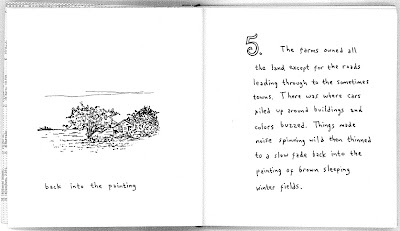 back into the painting
5. The farms owned all
the land except for the roads
leading through to the sometimes
towns. There was where cars
piled up around buildings and
colors buzzed. Things made
noise spinning wild then thinned
to a slow fade back into the
painting of brown sleeping
winter fields.